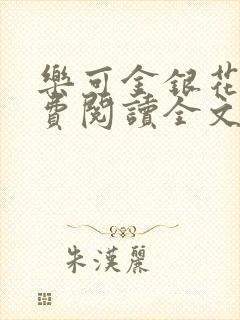 樂可金銀花
費閱讀全文
朱漢麗